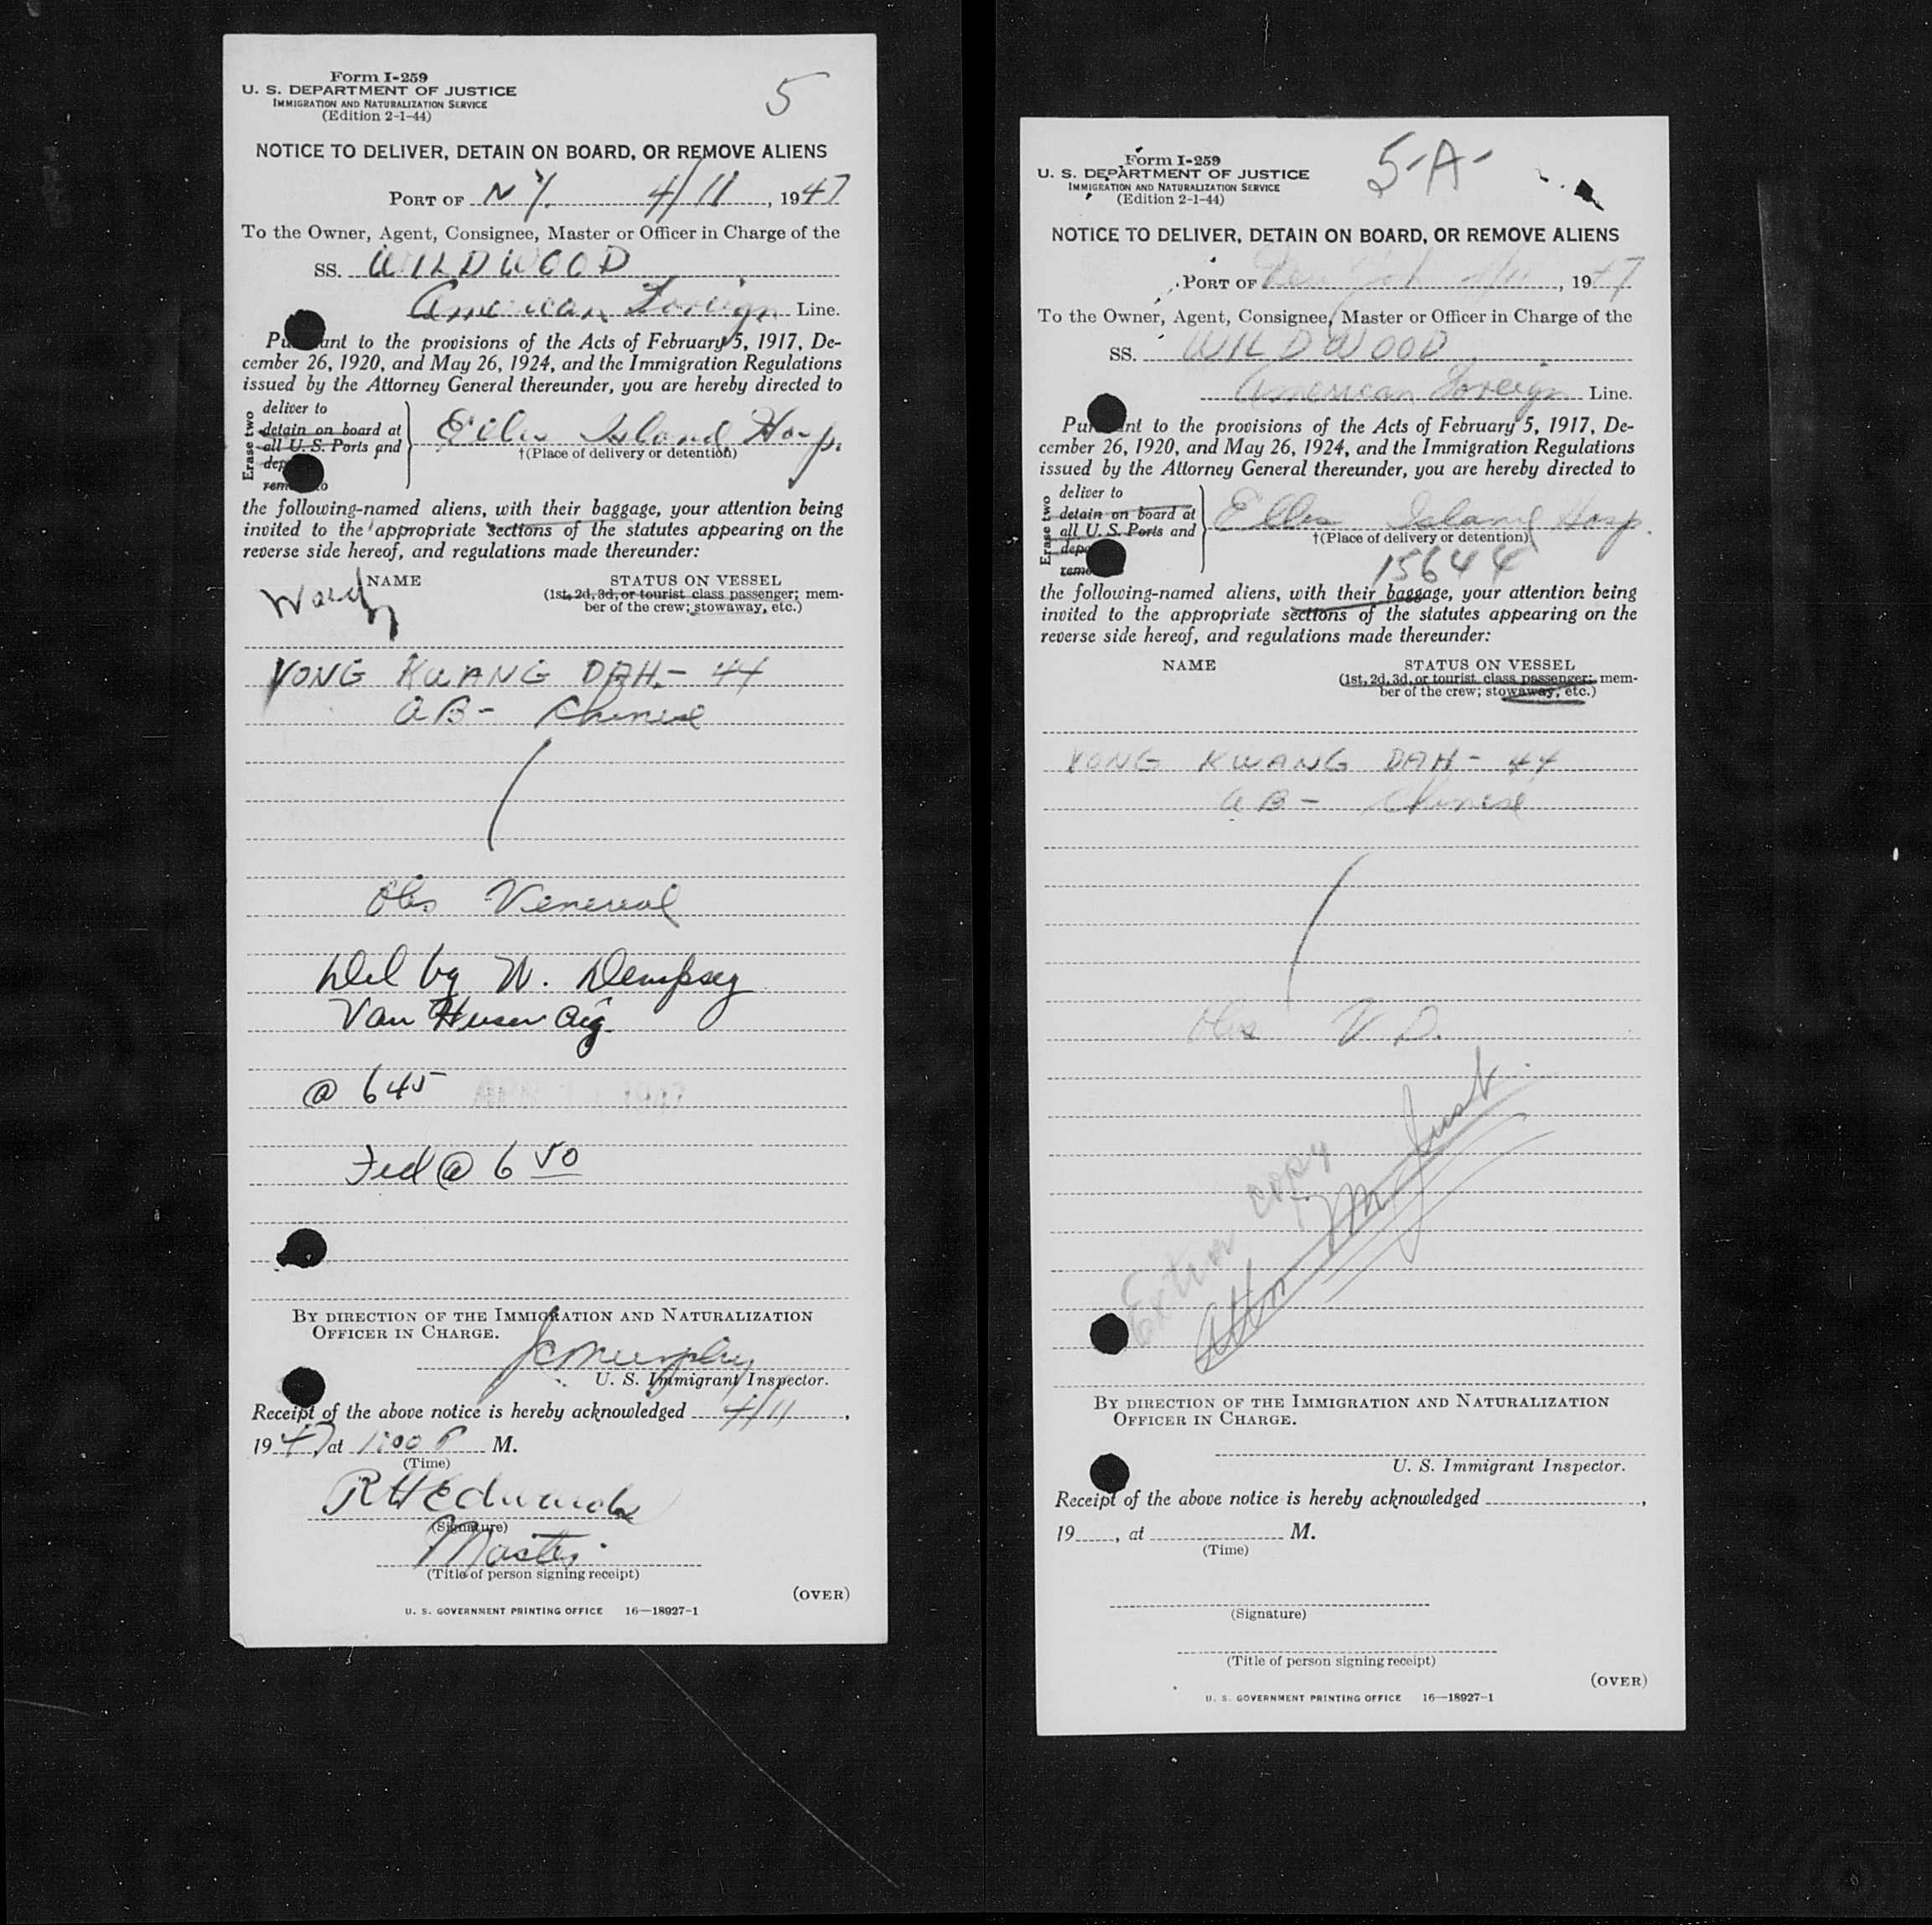 Form I-259
U. S. DEPARTMENT OF JUSTICE
IMMIGRATION AND NATURALIZATION SERVICE
(Edition 2-1-44)
5
NOTICE TO DELIVER, DETAIN ON BOARD, OR REMOVE ALIENS
PORT OF N Y. 4/11, 1947
To the Owner, Agent, Consignee, Master or Officer in Charge of the
SS. WILDWOOD
American Foreign Line.
Pu ant to the provisions of the Acts of February 5, 1917, De-
cember 26, 1920, and May 26, 1924, and the Immigration Regulations
issued by the Attorney General thereunder, you are hereby directed to
Erase two
deliver to
detain on board at
all U. S. Ports and
dep
rem o
Ellis Island Hosp.
†(Place of delivery or detention)
the following-named aliens, with their baggage, your attention being
invited to the appropriate sections of the statutes appearing on the
reverse side hereof, and regulations made thereunder:
NAME STATUS ON VESSEL
(1st, 2d, 3d, or tourist class passenger; mem-
ber of the crew; stowaway, etc.)
Ward
YONG KWANG DAH - 44
AB - Chinese
Obs Venereal
Del by W. Dempsey
@ 645
@ 6 50
BY DIRECTION OF THE IMMIGRATION AND NATURALIZATION
OFFICER IN CHARGE.
JC Murphy
U. S. Immigrant Inspector.
Receipt of the above notice is hereby acknowledged 4/11,
1947, at 1:00 P M.
(Time)
RH Edwards
(Signature)
Master
(Title of person signing receipt)
(OVER)
U. S. GOVERNMENT PRINTING OFFICE 16—18927-1
Form I-259
U. S. DEPARTMENT OF JUSTICE
IMMIGRATION AND NATURALIZATION SERVICE
(Edition 2-1-44)
5-A-
NOTICE TO DELIVER, DETAIN ON BOARD, OR REMOVE ALIENS
PORT OF New York 4/11, 1947
To the Owner, Agent, Consignee, Master or Officer in Charge of the
SS. WILDWOOD
American Foreign Line.
Pur nt to the provisions of the Acts of February 5, 1917, De-
cember 26, 1920, and May 26, 1924, and the Immigration Regulations
issued by the Attorney General thereunder, you are hereby directed to
Erase two
deliver to
detain on board at
all U. S. Ports and
depo
remo
Ellis Island Hosp.
†(Place of delivery or detention)
15644
the following-named aliens, with their baggage, your attention being
invited to the appropriate sections of the statutes appearing on the
reverse side hereof, and regulations made thereunder:
NAME STATUS ON VESSEL
(1st, 2d, 3d, or tourist class passenger; mem-
ber of the crew; stowaway, etc.)
YONG KWANG DAH - 44
AB - Chinese
Obs V D.
Extra copy
Attn
BY DIRECTION OF THE IMMIGRATION AND NATURALIZATION
OFFICER IN CHARGE.
U. S. Immigrant Inspector.
Receipt of the above notice is hereby acknowledged ,
19 , at M.
(Time)
(Signature)
(Title of person signing receipt)
(OVER)
U. S. GOVERNMENT PRINTING OFFICE 16—18927-1